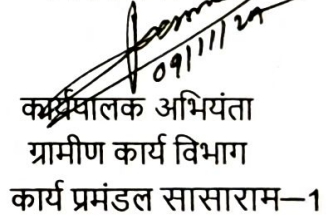 09/11/24
कार्यपालक अभियंता
ग्रामीण कार्य विभाग
कार्य प्रमंडल सासाराम–1